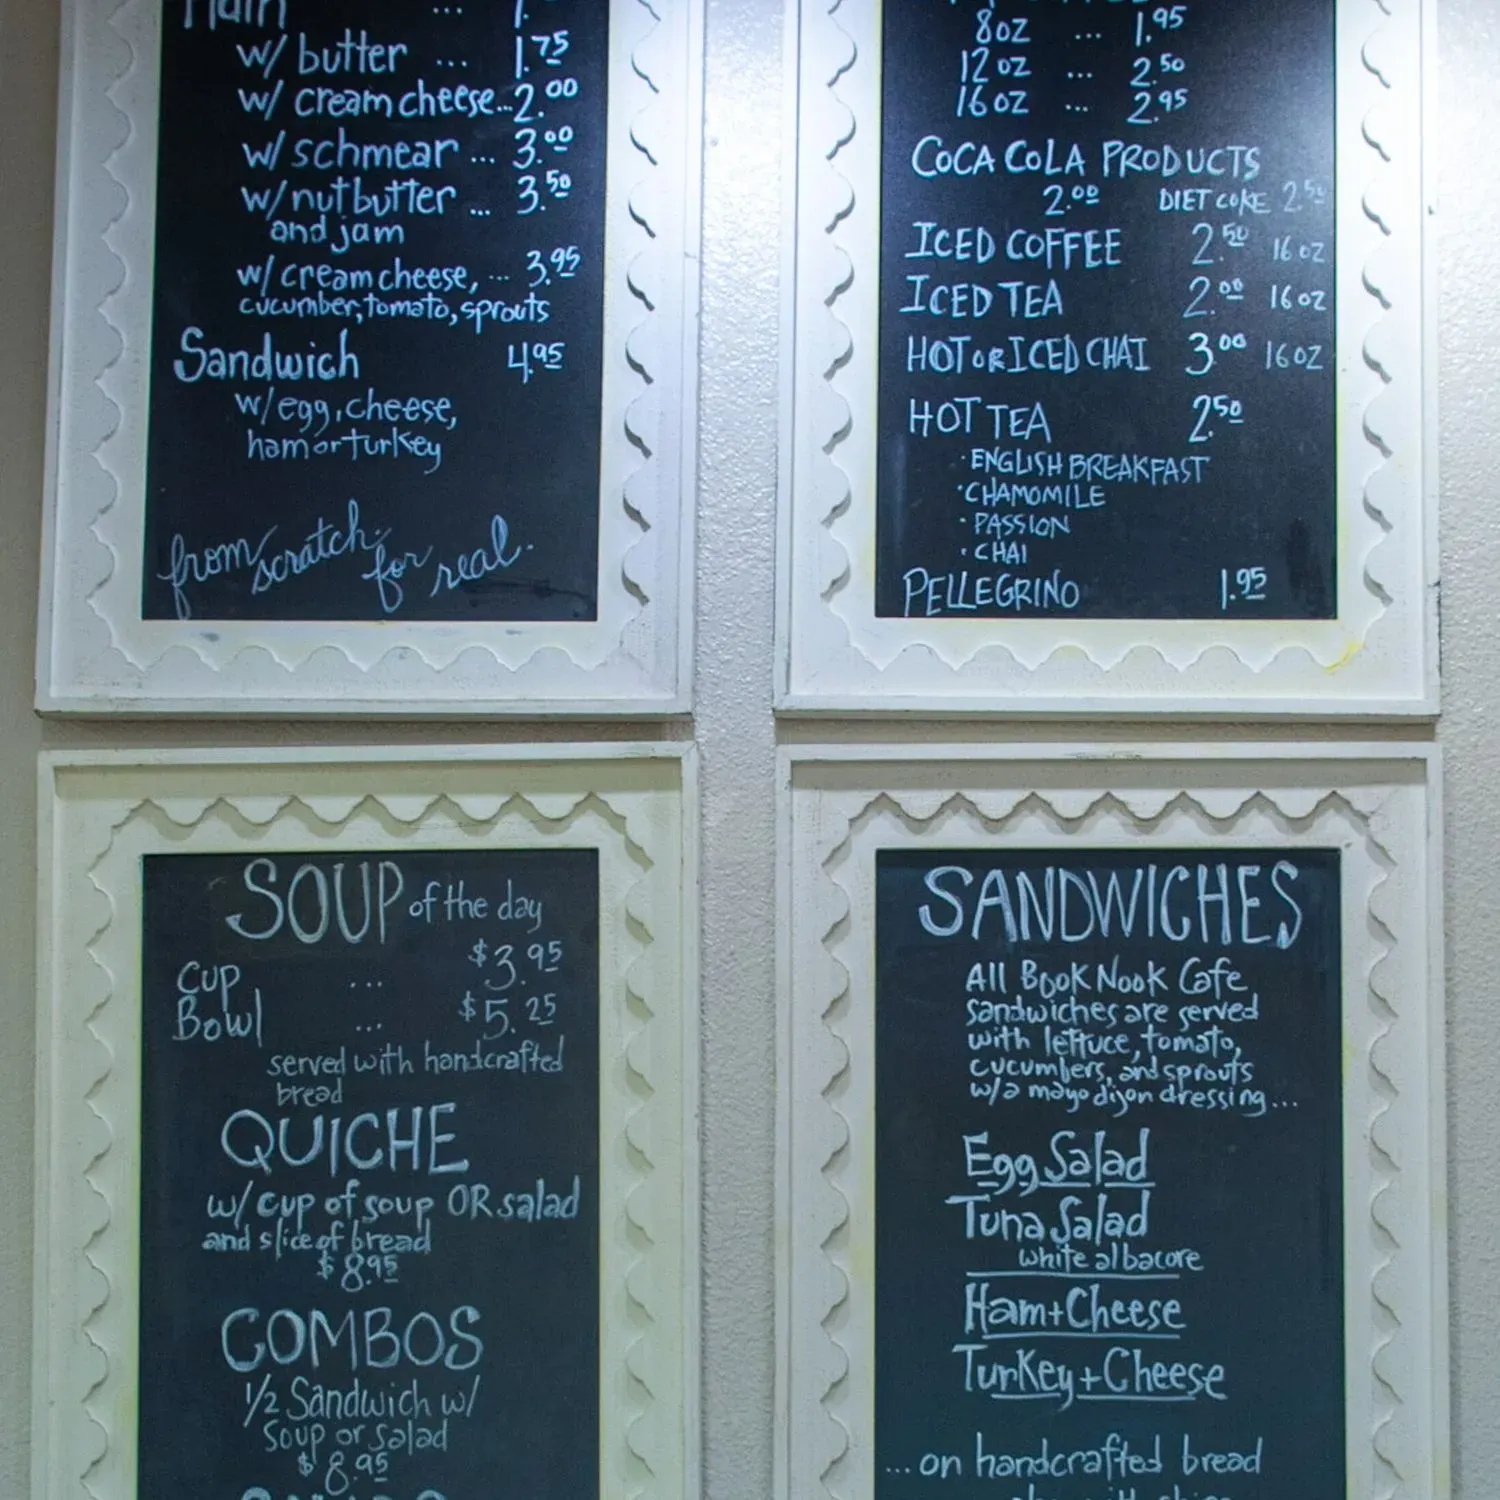 Plain ... 1.
w/ butter ... 1.75
w/ cream cheese... 2.00
w/ schmear ... 3.00
w/ nut butter ... 3.50
and jam
w/ cream cheese, ... 3.95
cucumber, tomato, sprouts
Sandwich 4.95
w/ egg, cheese,
ham or turkey
from scratch. for real.
8oz ... 1.95
12oz ... 2.50
16oz ... 2.95
COCA COLA PRODUCTS
2.00 DIET COKE 2.50
ICED COFFEE 2.50 16oz
ICED TEA 2.00 16oz
HOT OR ICED CHAI 3.00 16oz
HOT TEA 2.50
· ENGLISH BREAKFAST
· CHAMOMILE
· PASSION
· CHAI
PELLEGRINO 1.95
SOUP of the day
Cup ... $3.95
Bowl ... $5.25
served with handcrafted
bread
QUICHE
w/ cup of soup OR salad
and slice of bread
$8.95
COMBOS
1/2 Sandwich w/
soup or salad
$8.95
SANDWICHES
All Book Nook Cafe
sandwiches are served
with lettuce, tomato,
cucumbers, and sprouts
w/a mayo dijon dressing...
Egg Salad
Tuna Salad
white albacore
Ham + Cheese
Turkey + Cheese
...on handcrafted bread